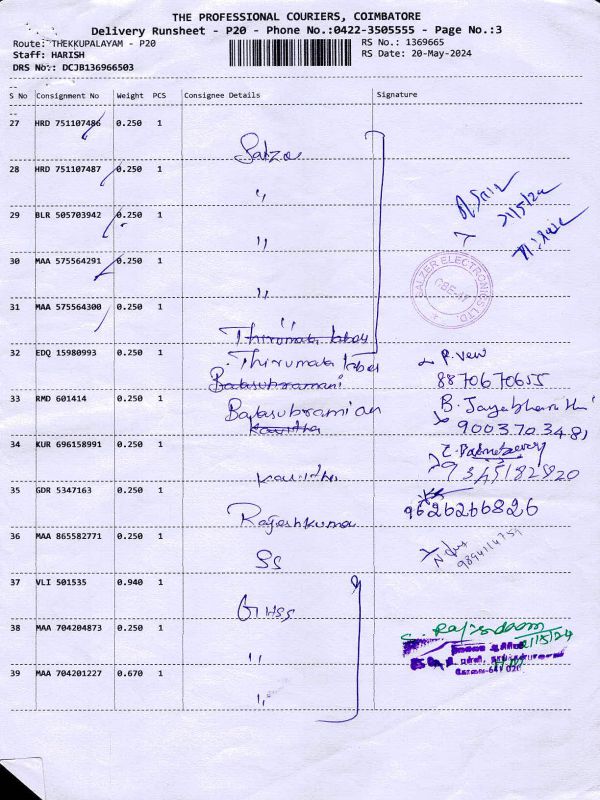 THE PROFESSIONAL COURIERS, COIMBATORE
Delivery Runsheet - P20 - Phone No.:0422-3505555 - Page No.:3
Route: THEKKUPALAYAM - P20 RS No.: 1369665
Staff: HARISH RS Date: 20-May-2024
DRS No:: DCJB136966503
S No Consignment No Weight PCS Consignee Details Signature
27 HRD 751107486 0.250 1
Salzer
28 HRD 751107487 0.250 1
"
29 BLR 505703942 0.250 1
"
30 MAA 575564291 0.250 1
"
SALZER ELECTRONICS LTD.
CBE-47
31 MAA 575564300 0.250 1
"
Thirumala labes
32 EDQ 15980993 0.250 1
Thirumala labes
Balasubramani
8870670655
33 RMD 601414 0.250 1
Balasubramian
Kavitha
9003703481
34 KUR 696158991 0.250 1
Kavitha
35 GDR 5347163 0.250 1
Rajeshkumar
9626266826
36 MAA 865582771 0.250 1
SS
37 VLI 501535 0.940 1
GHSS
38 MAA 704204873 0.250 1
"
39 MAA 704201227 0.670 1
"